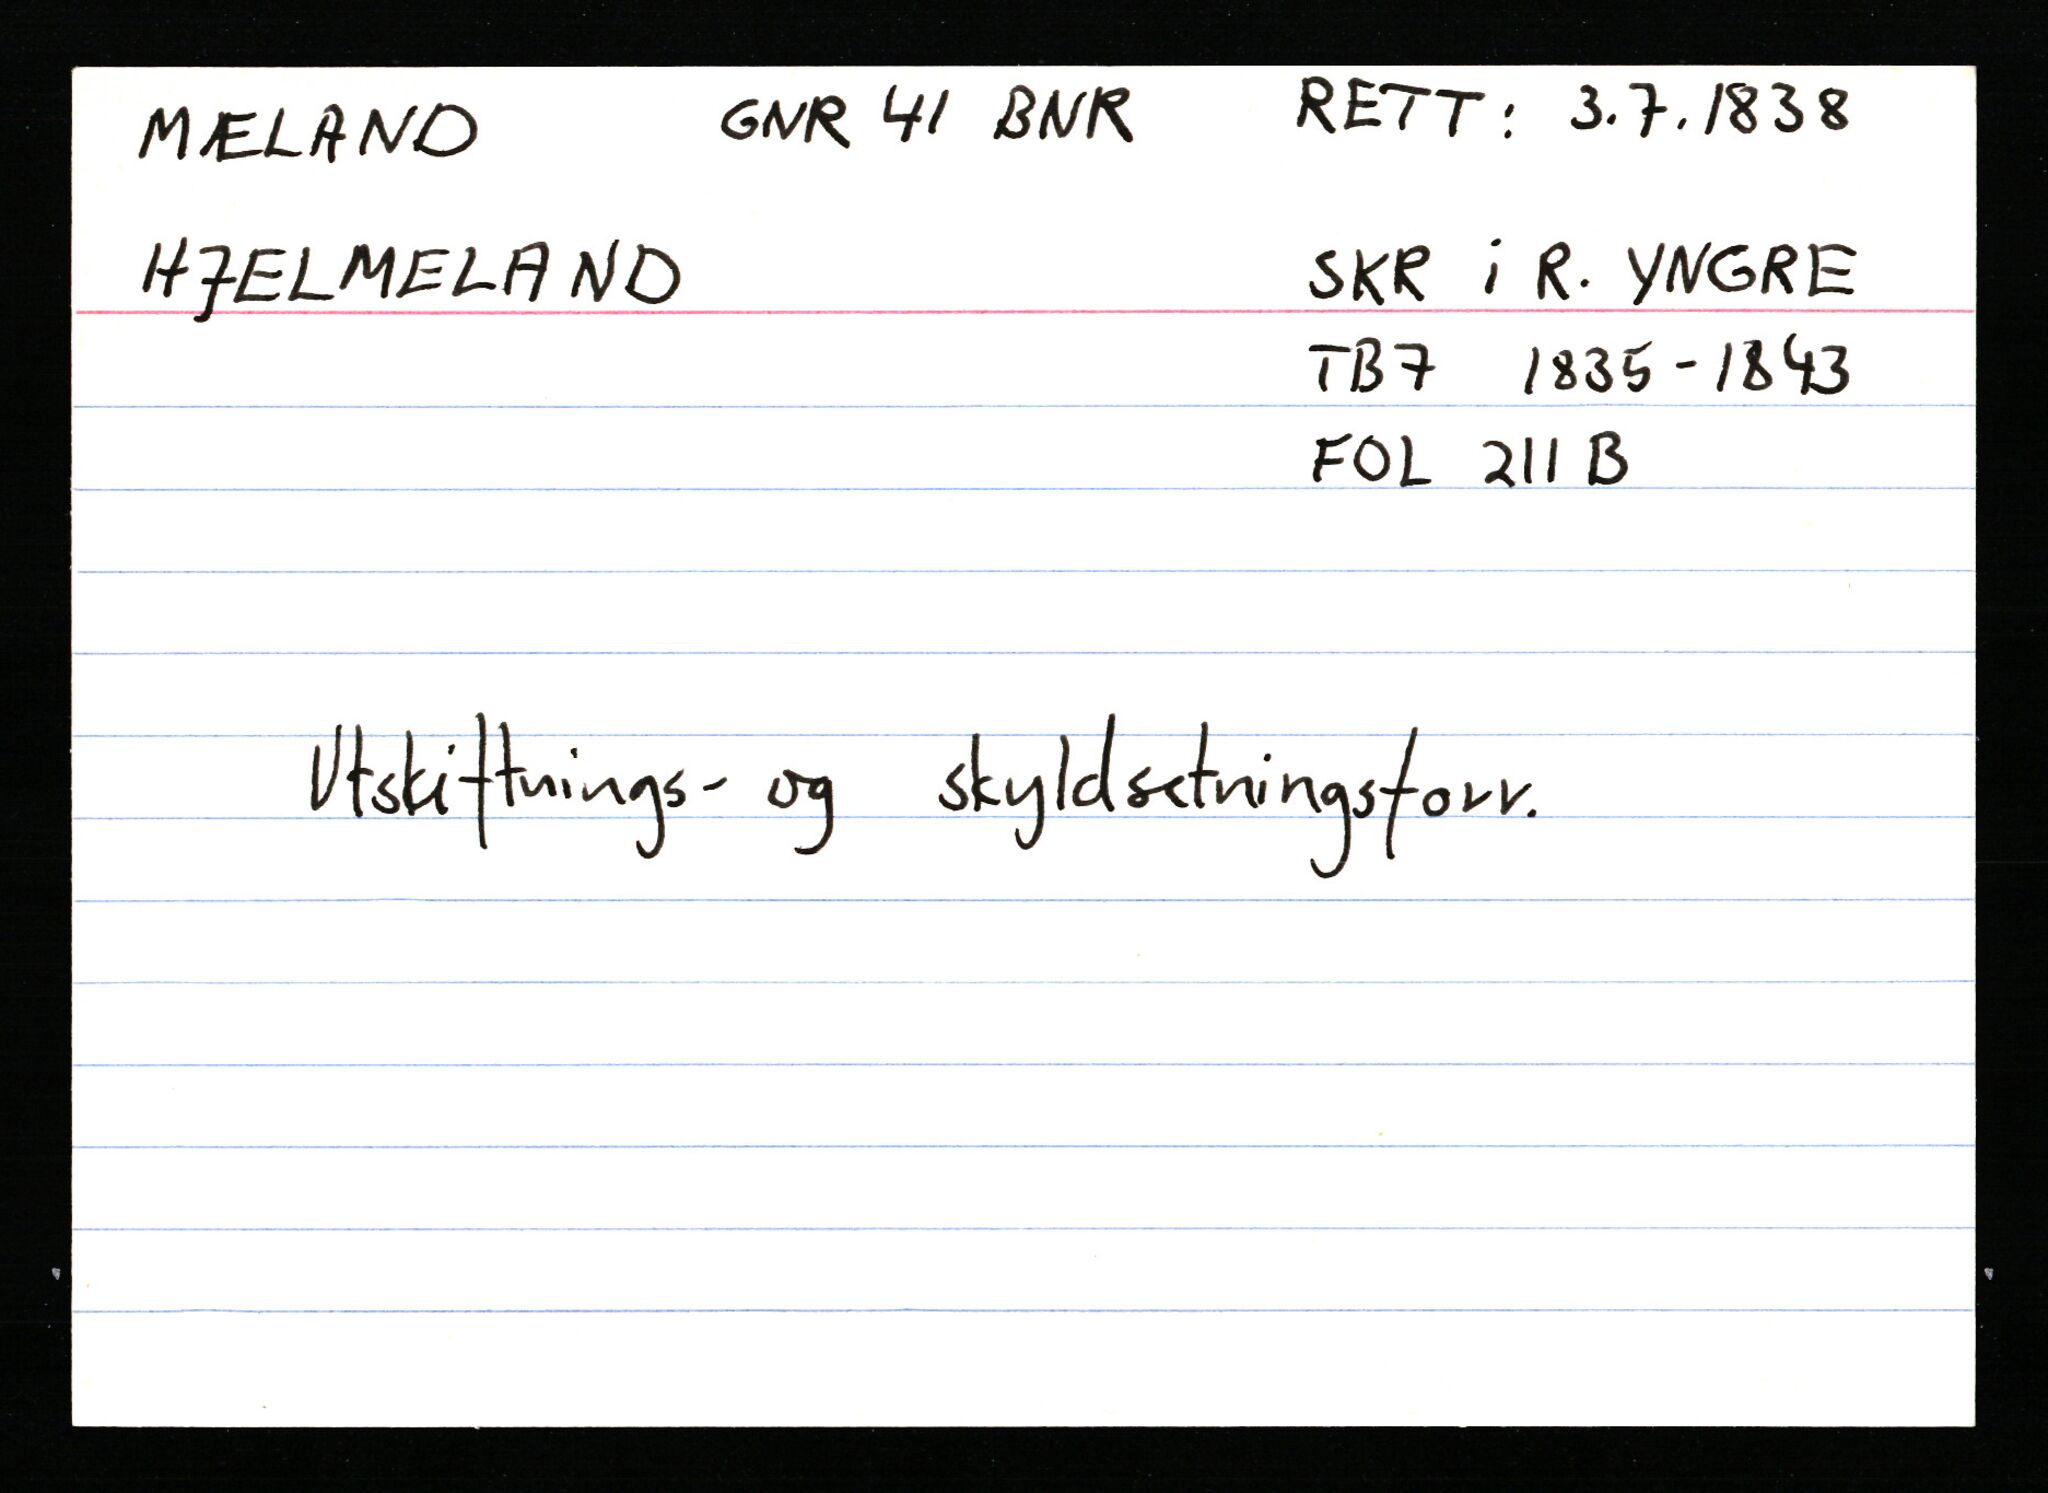 MÆLAND GNR 41 BNR RETT: 3.7.1838
HJELMELAND SKR i R. YNGRE
TB7 1835-1843
FOL 211 B
Utskiftnings- og skyldsetningsforr.